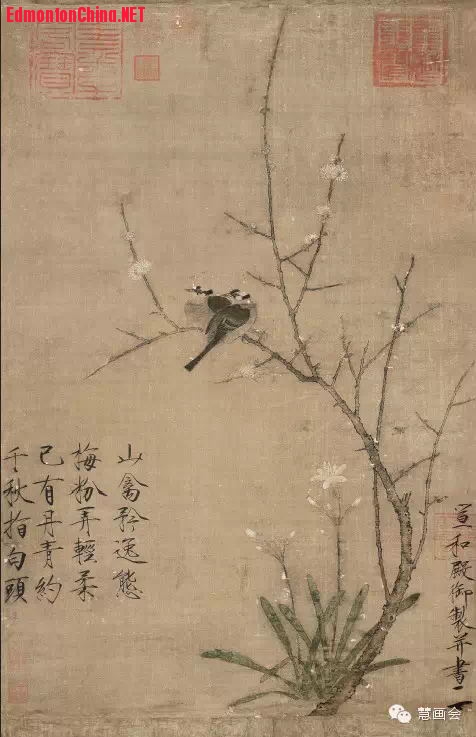 EdmontonChina.NET
山禽矜逸態
梅粉弄輕柔
已有丹青約
千秋指白頭
宣和殿御製并書
慧画会